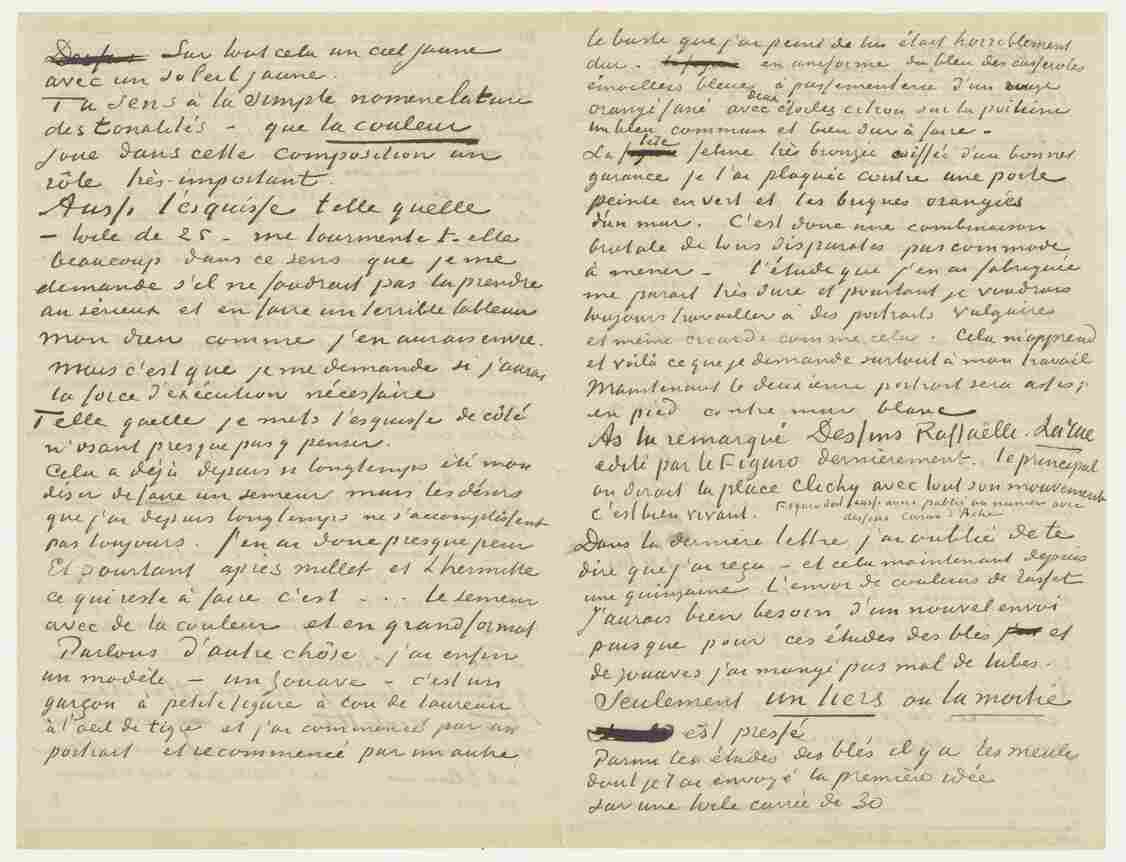 Dessus Sur tout cela un ciel jaune
avec un soleil jaune.
Tu sens à la simple nomenclature
des tonalités – que la couleur
joue dans cette composition un
rôle très-important.
Aussi l'esquisse telle quelle
– toile de 25 – me tourmente t-elle
beaucoup dans ce sens que je me
demande s'il ne faudrait pas la prendre
au sérieux et en faire un terrible tableau
mon dieu comme j'en aurais envie.
Mais c'est que je me demande si j'aurai
la force d'exécution nécessaire
Telle quelle je mets l'esquisse de côté
n'osant presque pas y penser.
Cela a déjà depuis si longtemps été mon
désir de faire un semeur mais les désirs
que j'ai depuis longtemps ne s'accomplissent
pas toujours. J'en ai donc presque peur
Et pourtant après Millet et Lhermitte
ce qui reste à faire c'est . . . le semeur
avec de la couleur et en grand format
Parlons d'autre chôse – j'ai enfin
un modèle – un Zouave – c'est un
garçon à petite figure à cou de taureau
à l'oeil de tigre et j'ai commencé par un
portrait et recommencé par un autre
le buste que j'ai peint de lui était horriblement
dur. en uniforme du bleu des casseroles
émaillées bleues à passementerie d'un rouge
orangé fané avec deux étoiles citron sur la poitrine
un bleu commun et bien dur à faire –
La tête féline très bronzée coiffée d'un bonnet
garance je l'ai plaquée contre une porte
peinte en vert et les briques orangées
d'un mur. C'est donc une combinaison
brutale de tons disparates pas commode
à mener – l'étude que j'en ai fabriquée
me parait très dure et pourtant je voudrais
toujours travailler à des portraits vulgaires
et même criards comme cela. Cela m'apprend
et voilà ce que je demande surtout à mon travail
Maintenant le deuxième portrait sera assis
en pied contre mur blanc
As tu remarqué Dessins Raffaëlle. La rue
édité par le Figaro dernièrement. le principal
on dirait la place Clichy avec tout son mouvement
c'est bien vivant. Figaro doit aussi avoir publié un numéro avec
dessins Caran d'Ache
Dans la dernière lettre j'ai oublié de te
dire que j'ai reçu – et cela maintenant depuis
une quinzaine l'envoi de couleurs de Tasset
J'aurais bien besoin d'un nouvel envoi
puisque pour ces études des blés et
de zouaves j'ai mangé pas mal de tubes.
Seulement un tiers ou la moitié
est pressé
Parmi les études des blés il y a les meules
dont je t'ai envoyé la première idée
sur une toile carrée de 30